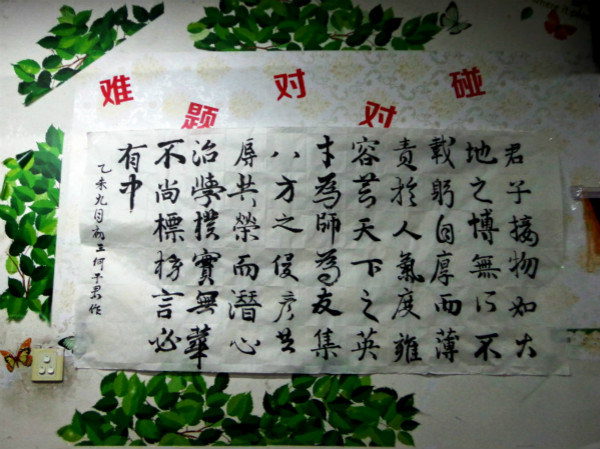 难题对对碰
君子接物如大
地之博無所不
載躬自厚而薄
責於人氣度雍
容芸天下之英
才為師為友集
八方之俊彥共
辱共榮而潛心
治學樸實無華
不尚標榜言必
有中
乙未九月初五何子作